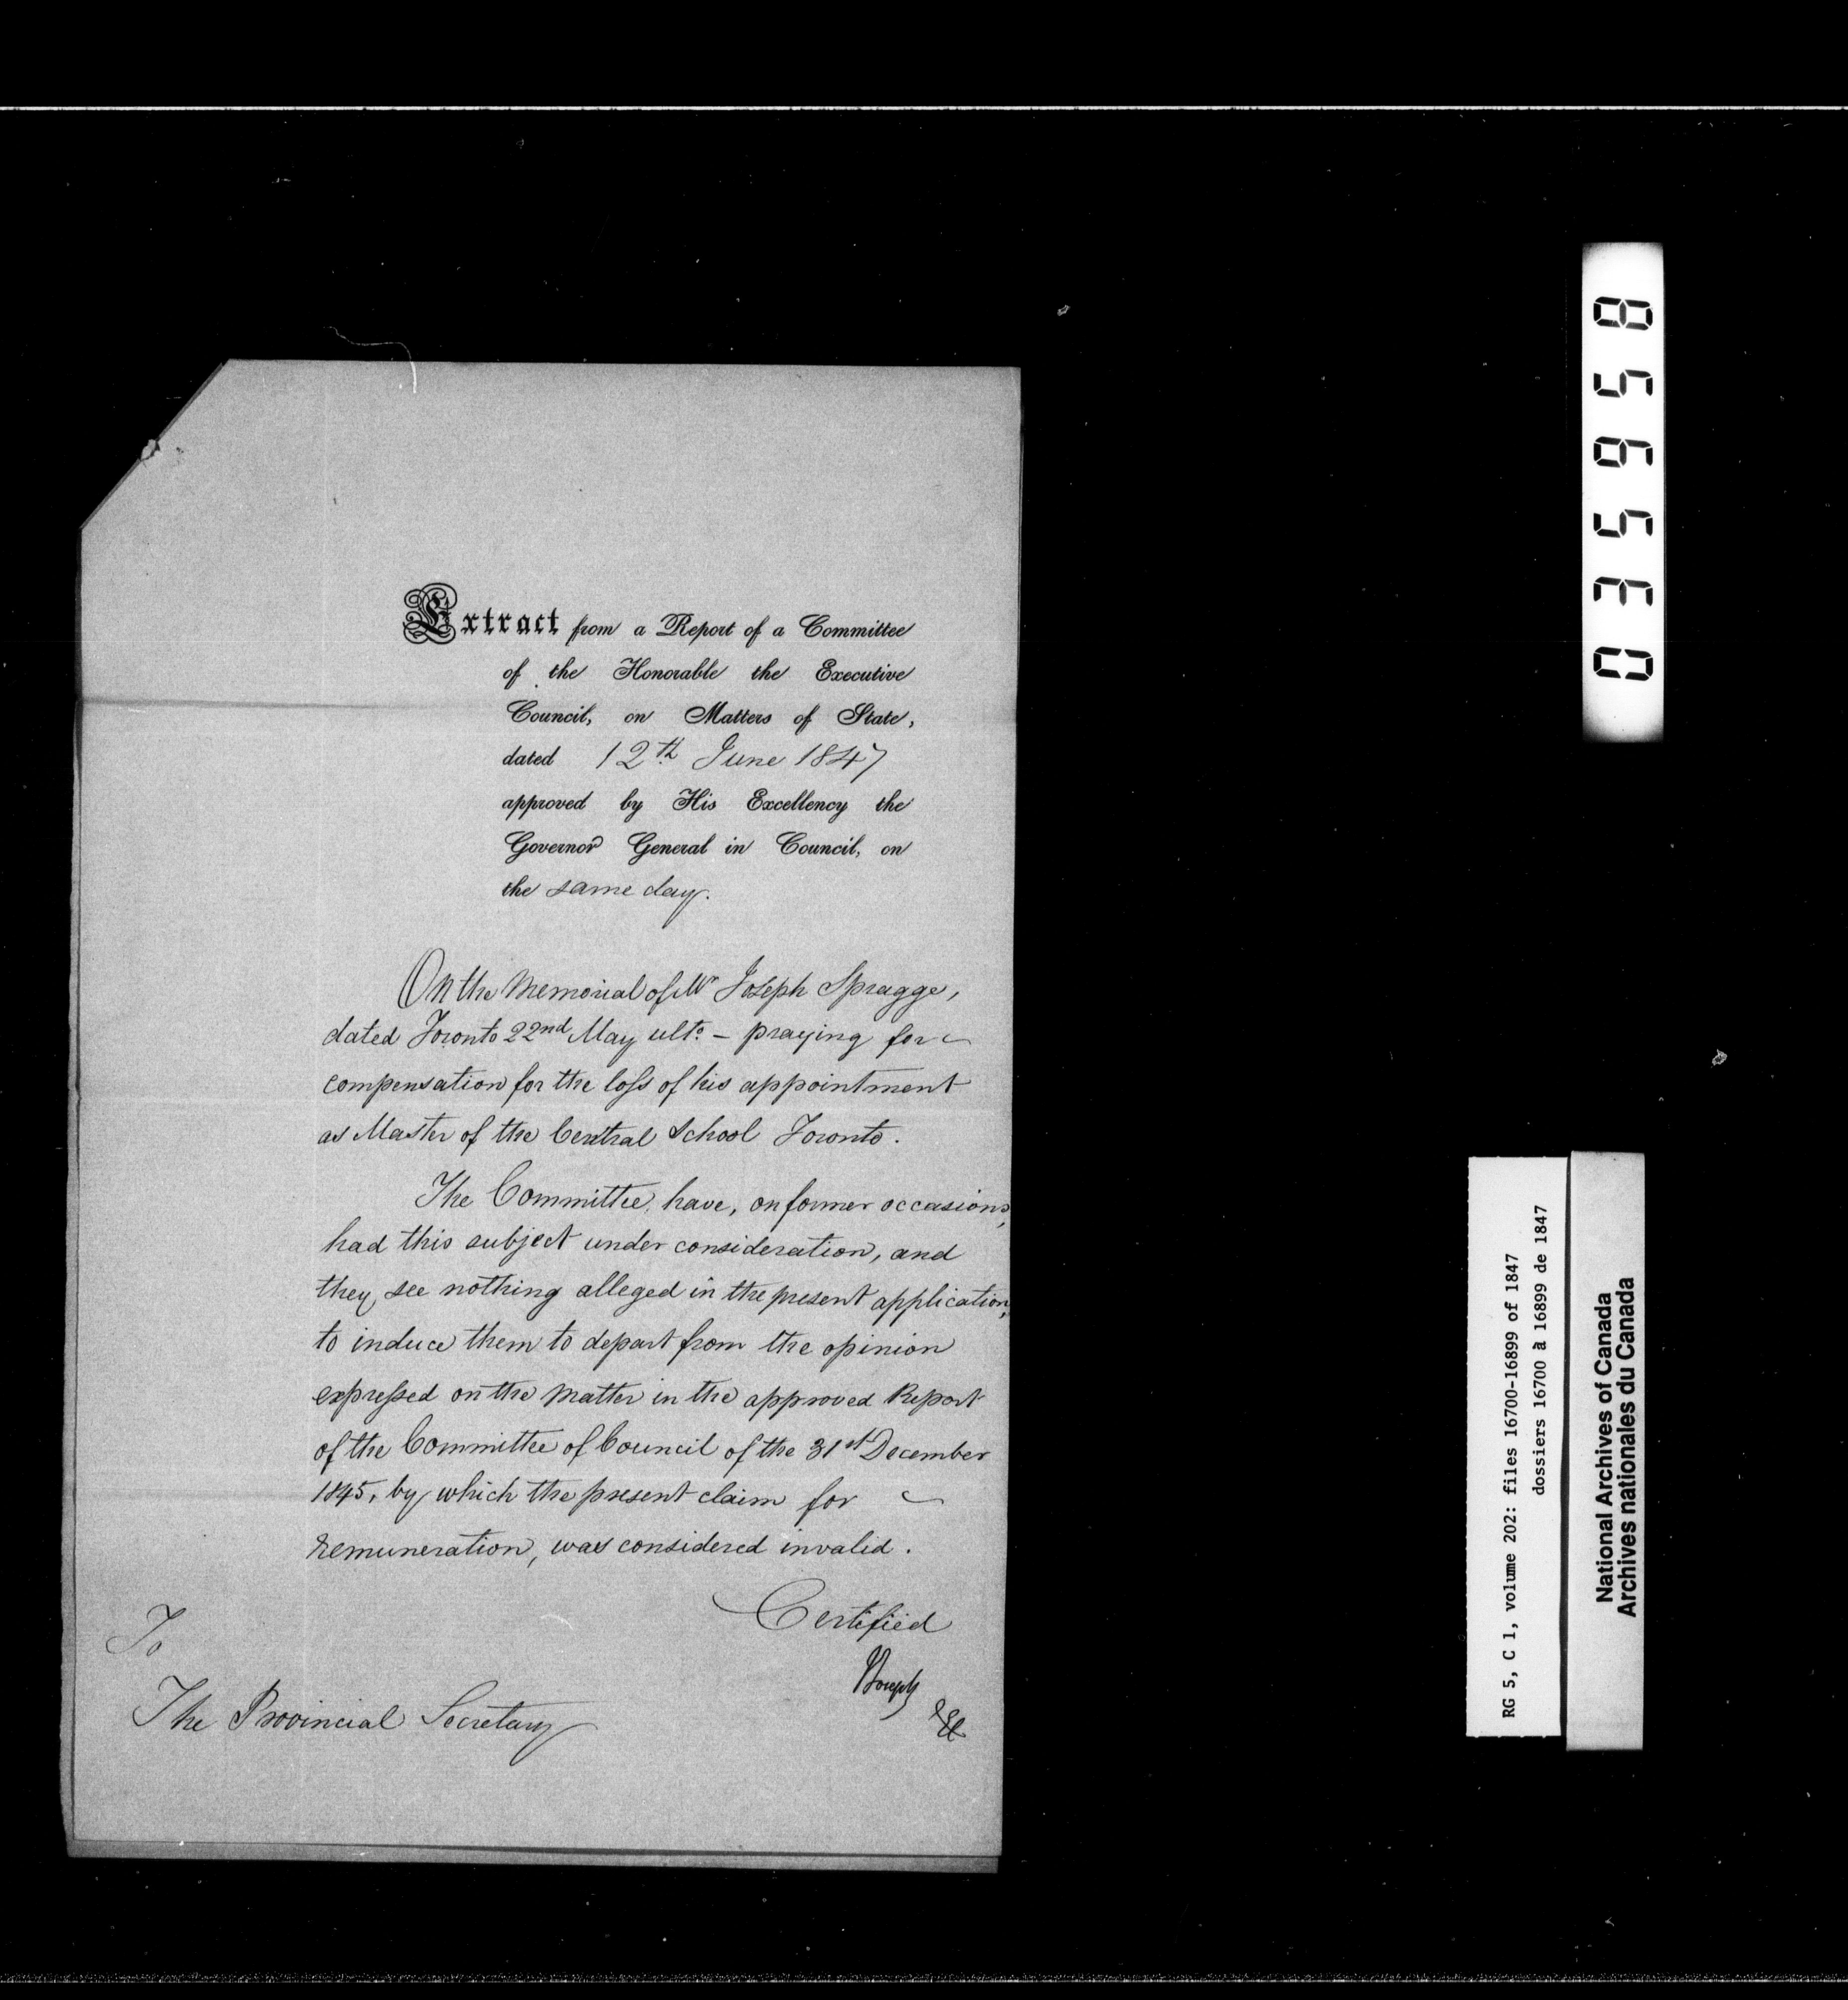 Extract from a Report of a Committee
of the Honorable the Executive
Council, on Matters of State,
dated 12th June 1847
approved by His Excellency the
Governor General in Council, on
the same day.
On the Memorial of Mr Joseph Spragge,
dated Toronto 22nd May ulto. – praying for
compensation for the loss of his appointment
as Master of the Central School Toronto.
The Committee, have, on former occasions,
had this subject under consideration, and
they see nothing alleged in the present application,
to induce them to depart from the opinion
expressed on the matter in the approved Report
of the Committee of Council of the 31st December
1845, by which the present claim for
remuneration, was considered invalid.
Certified
Joseph
To
The Provincial Secretary
035958
RG 5, C 1, volume 202: files 16700-16899 of 1847
dossiers 16700 à 16899 de 1847
National Archives of Canada
Archives nationales du Canada